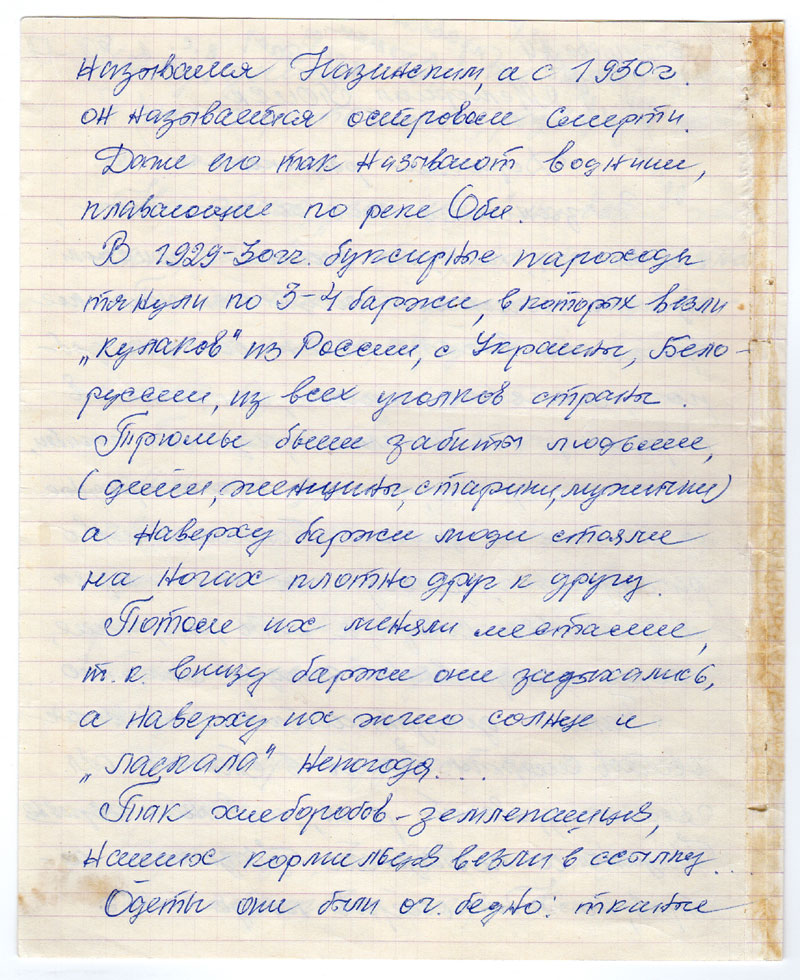 назывался Назинским, а с 1930г.
он называется островом смерти.
Даже его так называют водники,
плавающие по реке Оби.
В 1929-30гг. буксирные пароходы
тянули по 3-4 баржи, в которых везли
„кулаков" из России, с Украины, Бело-
руссии, из всех уголков страны.
Трюмы были забиты людьми,
(дети, женщины, старики, мужички)
а наверху баржи люди стояли
на ногах плотно друг к другу.
Потом их меняли местами,
т.к. внизу баржи они задыхались,
а наверху их жгло солнце и
„ласкала" непогода...
Так хлеборобов-землепашцев,
наших кормильцев везли в ссылку...
Одеты они были оч. бедно: тканые